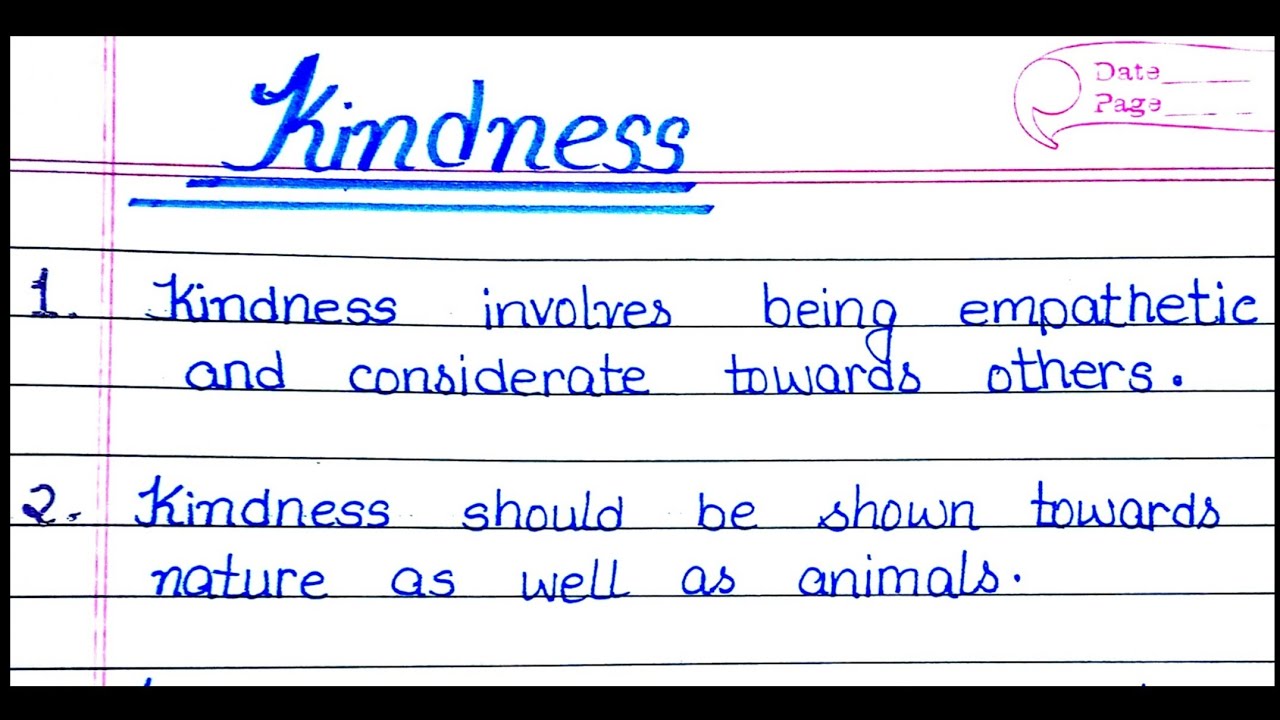 Kindness
Date
Page
1. Kindness involves being empathetic
and considerate towards others.
2. Kindness should be shown towards
nature as well as animals.